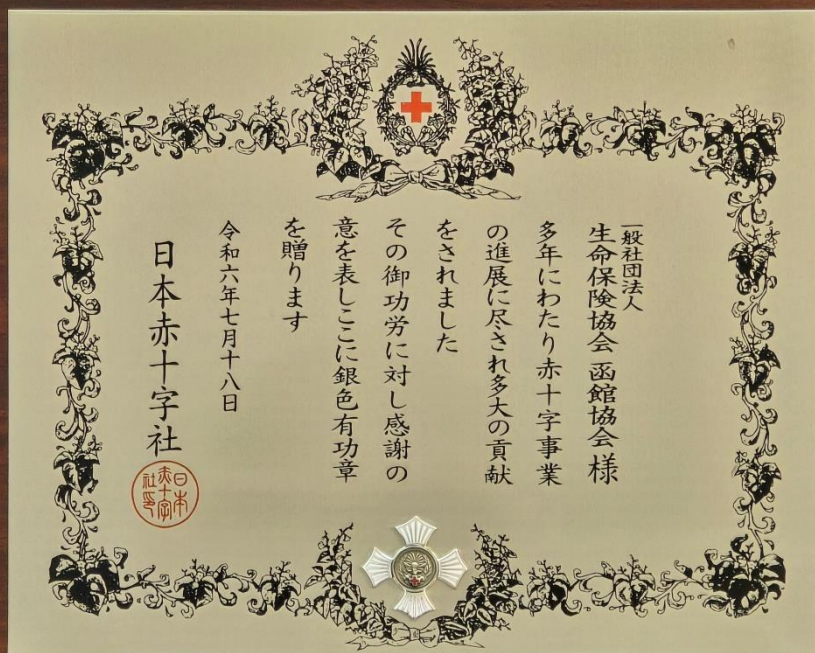 一般社団法人
生命保険協会 函館協会 様
多年にわたり赤十字事業
の進展に尽され多大の貢献
をされました
その御功労に対し感謝の
意を表しここに銀色有功章
を贈ります
令和六年七月十八日
日本赤十字社
日本
赤十字
社印